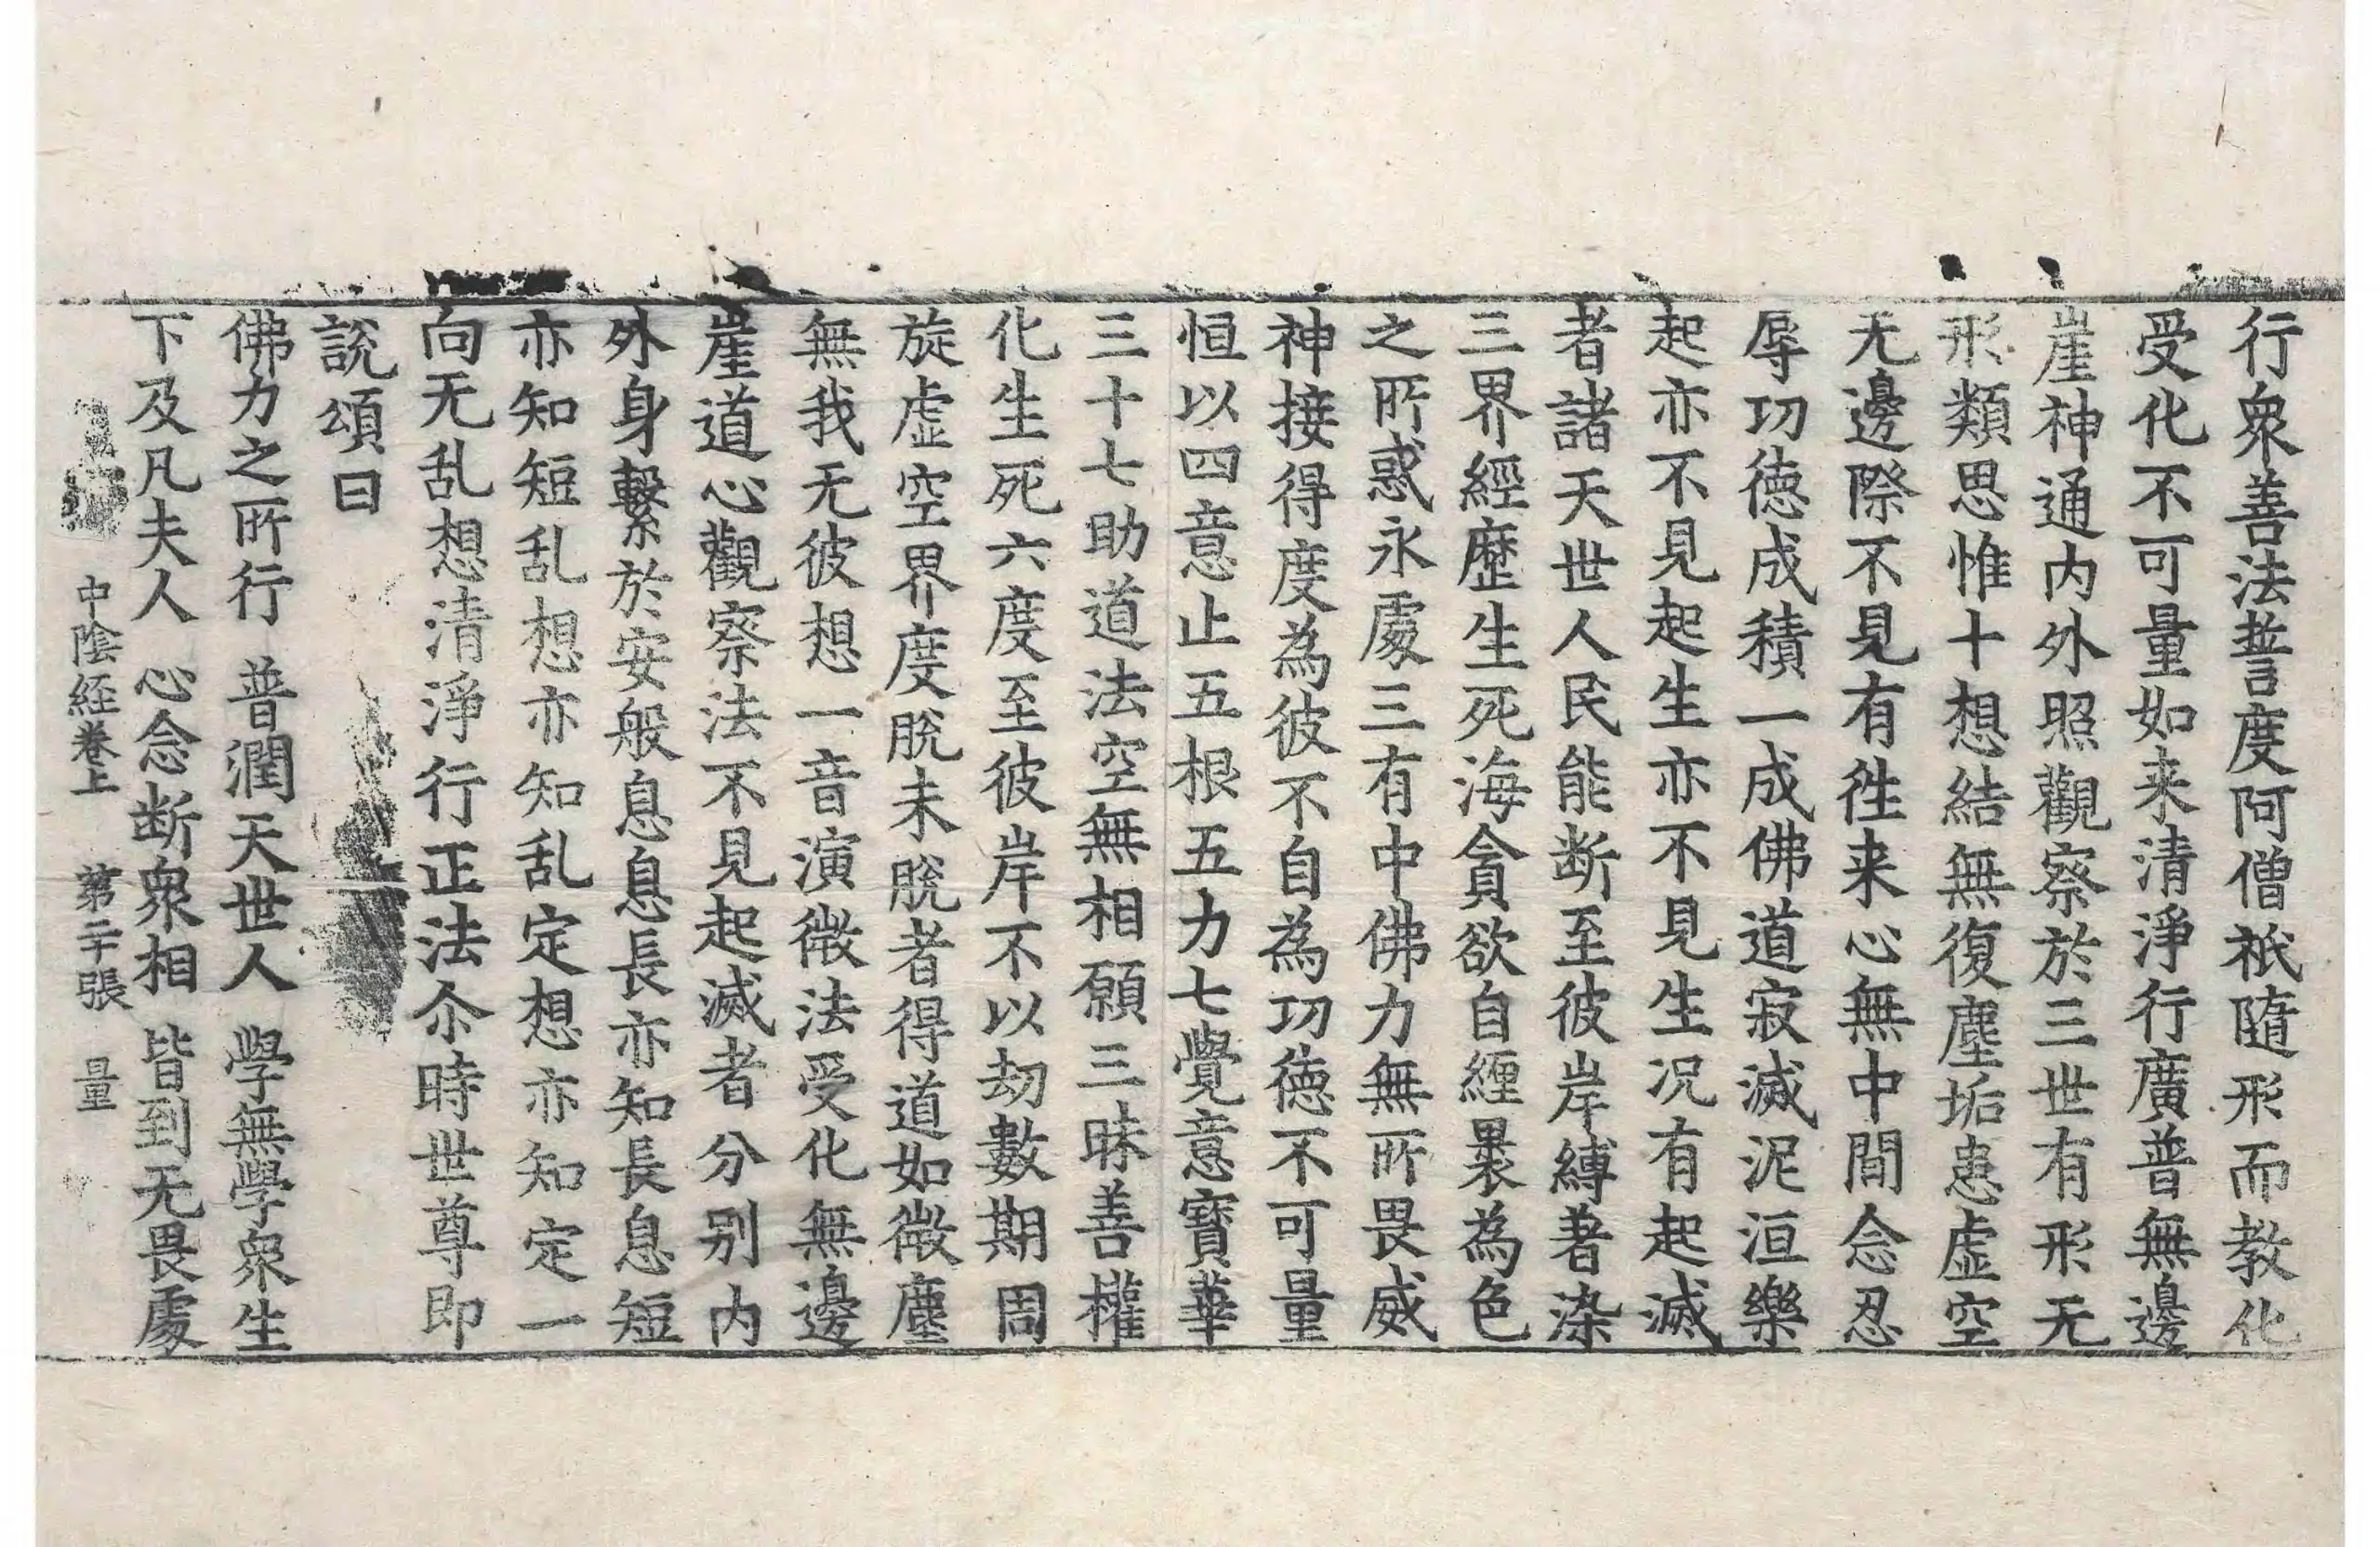 行衆善法誓度阿僧祇隨形而教化
受化不可量如来清淨行廣普無邊
崖神通内外照觀察於三世有形无
形類思惟十想結無復塵垢患虚空
无邊際不見有徃来心無中間念忍
辱功徳成積一成佛道寂滅泥洹樂
起亦不見起生亦不見生况有起滅
者諸天世人民能断至彼岸縛著染
三界經歷生死海貪欲自纒裹為色
之所惑永處三有中佛力無所畏威
神接得度為彼不自為功徳不可量
恒以四意止五根五力七覺意寶華
三十七助道法空無相願三昧善權
化生死六度至彼岸不以劫數期周
旋虚空界度脫未脫者得道如微塵
無我无彼想一音演微法受化無邊
崖道心觀察法不見起滅者分别内
外身繫於安般息息長亦知長息短
亦知短乱想亦知乱定想亦知定一
向无乱想清淨行正法尒時世尊即
說頌曰
佛力之所行　普潤天世人　學無學衆生
下及凡夫人　心念断衆相　皆到无畏處
中陰経卷上　第二十張　量